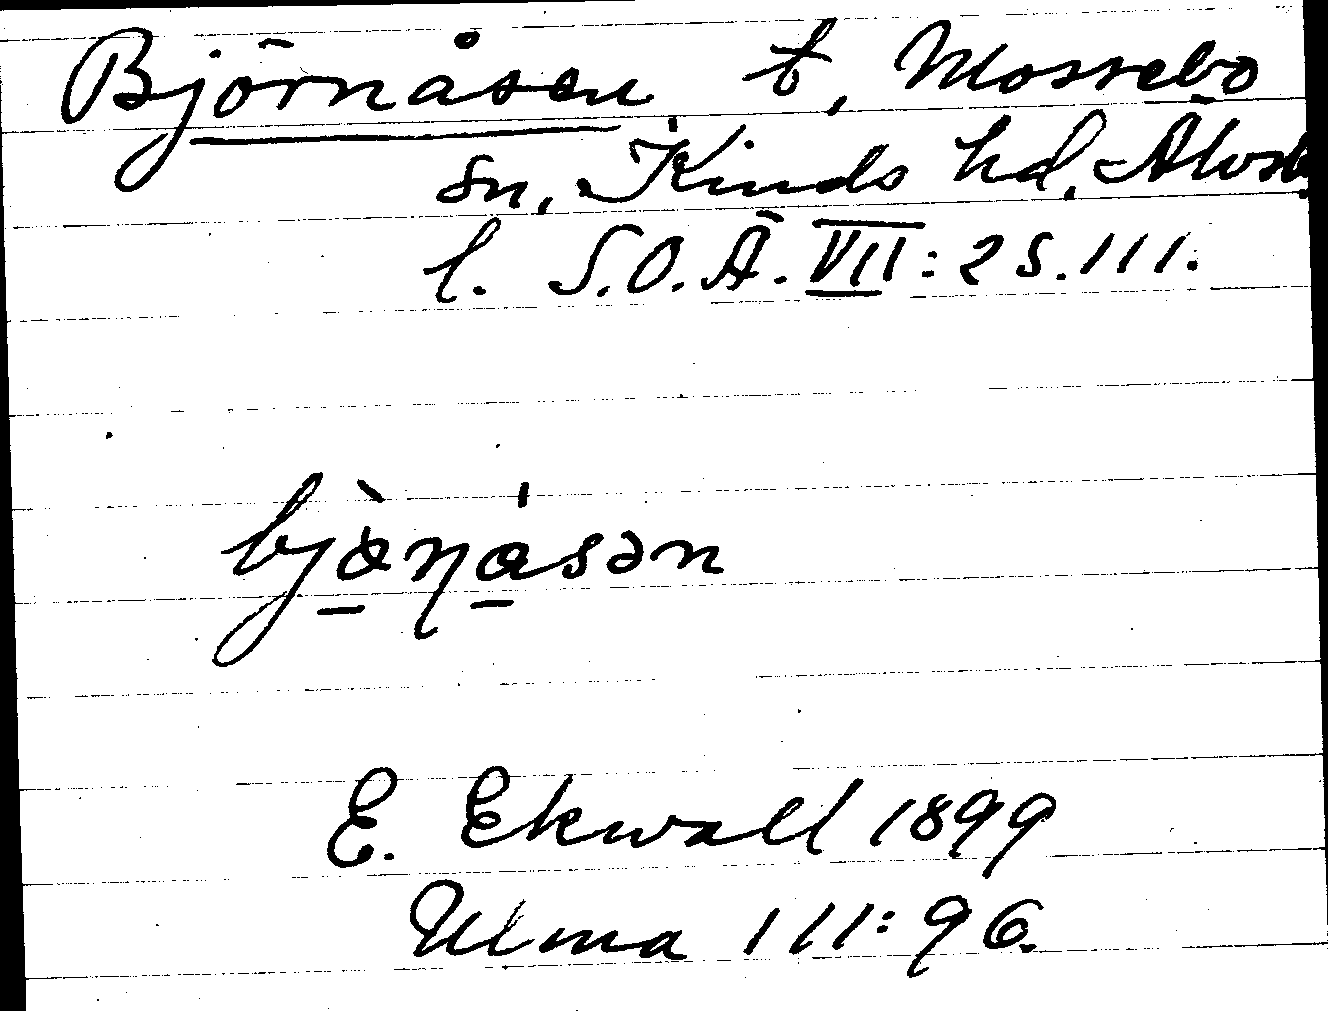 Björnåsen t, Mossebo
sn, Kinds hd, Älvsb.
l. S.O.Ä. VII: 2 S. 111.
bjònåsən
E. Ekwall 1899
Ulma 111: 96.